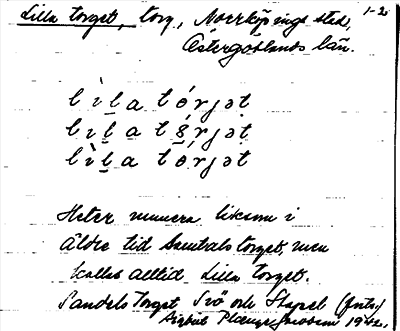 1-2
Lilla torget, torg, Norrköpings stad,
Östergötlands län.
lìḷa tórjət
lìḷa tórjət
lìḷa tórjət
Heter numera liksom i
äldre tid Samtals torget, men
kallas alltid Lilla torget.
Sandels Torget Två och Stapel (forts.)
1942.